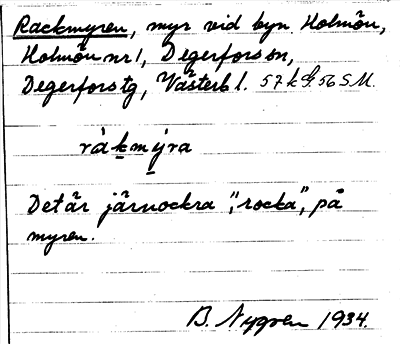 Rackmyren, myr vid byn. Holmön,
Holmön nr 1, Degerfors sn,
Degerfors tg, Västerb l. 57 k G. 56 S M.
råkmýra
Det är järnockra "rocka", på
myren.
B. Nygren 1934.